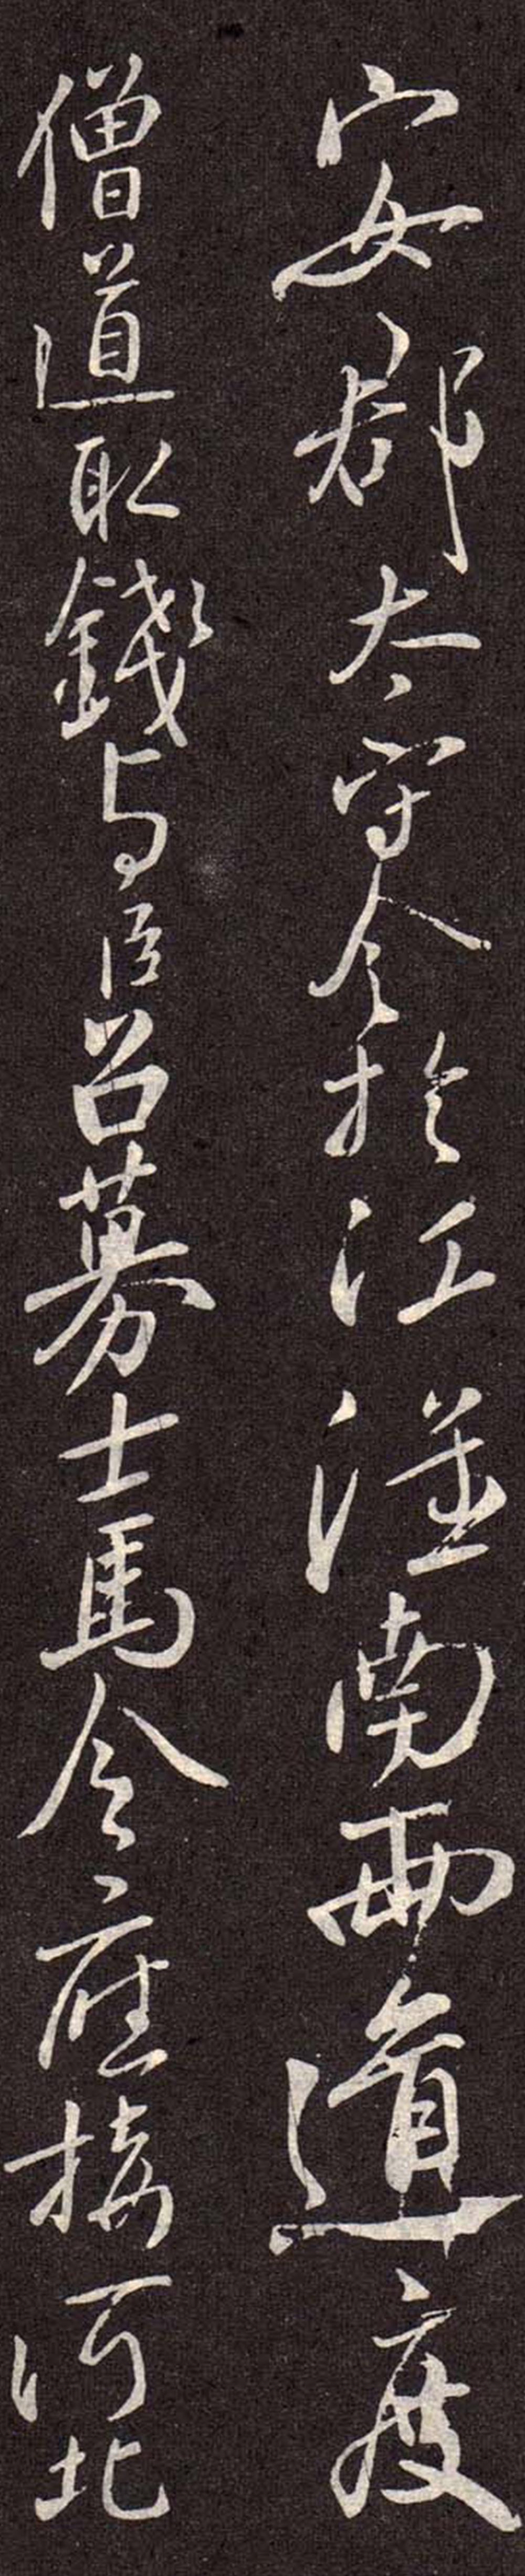 安郡太守令於江淮南兩道度
僧道取錢与臣召募士馬令應接河北